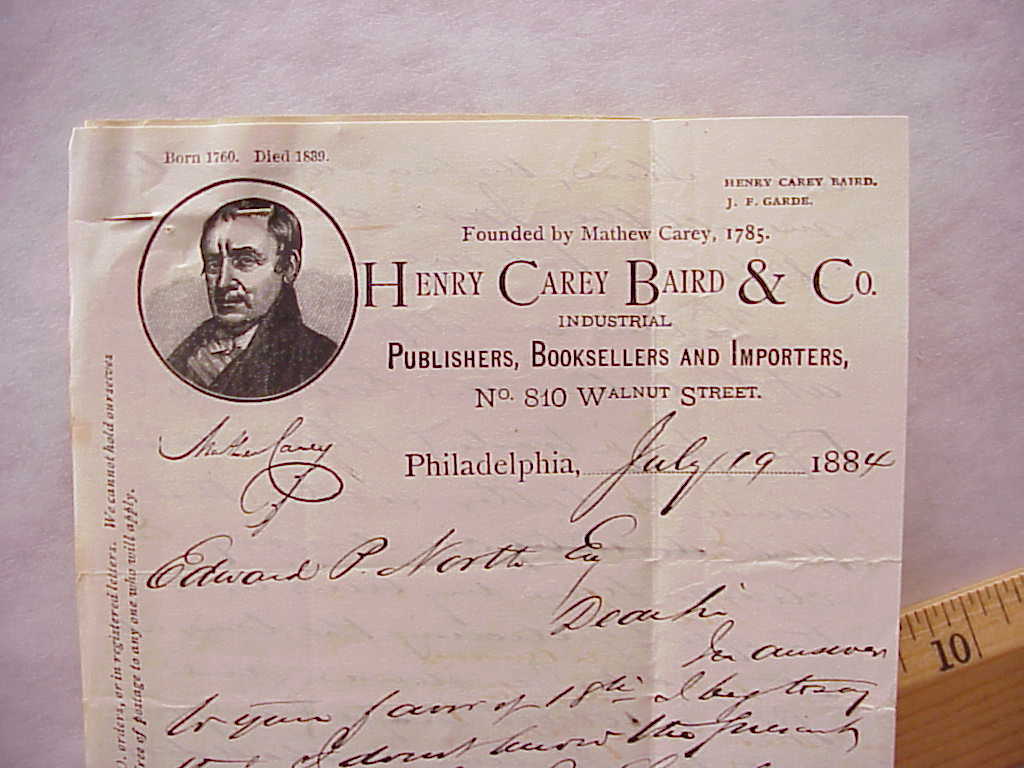 Born 1760. Died 1839.
HENRY CAREY BAIRD.
J. F. GARDE.
Founded by Mathew Carey, 1785.
HENRY CAREY BAIRD & CO.
INDUSTRIAL
PUBLISHERS, BOOKSELLERS AND IMPORTERS,
No. 810 WALNUT STREET.
Mathew Carey
Philadelphia, July 19 1884
Edward P. North Esq
Dear Sir
In answer
to your favor of 18th I beg to say
that I don't know the present
orders, or in registered letters. We cannot hold ourselves
free of postage to any one who will apply.
10